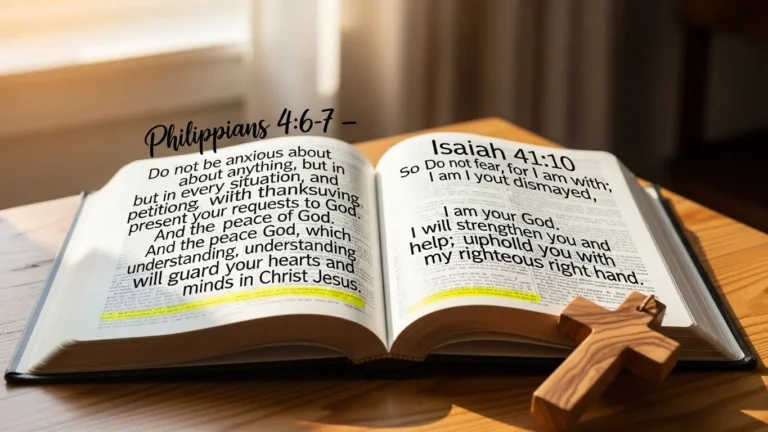 Philippians 4:6-7 –
Do not be anxious about
about anything, but in
but in every situation, and
petitiong, wiith thanksuving,
present your requests to God.
And the peace of God.
And the peace God, which
understanding, understanding
will guard your hearts and
minds in Christ Jesus.
Isaiah 41:10
So Do not fear, for I am with;
I am I yout dismayed,
I am your God.
I will strengthen you and
help; uipholld you with
my righteous right hand.